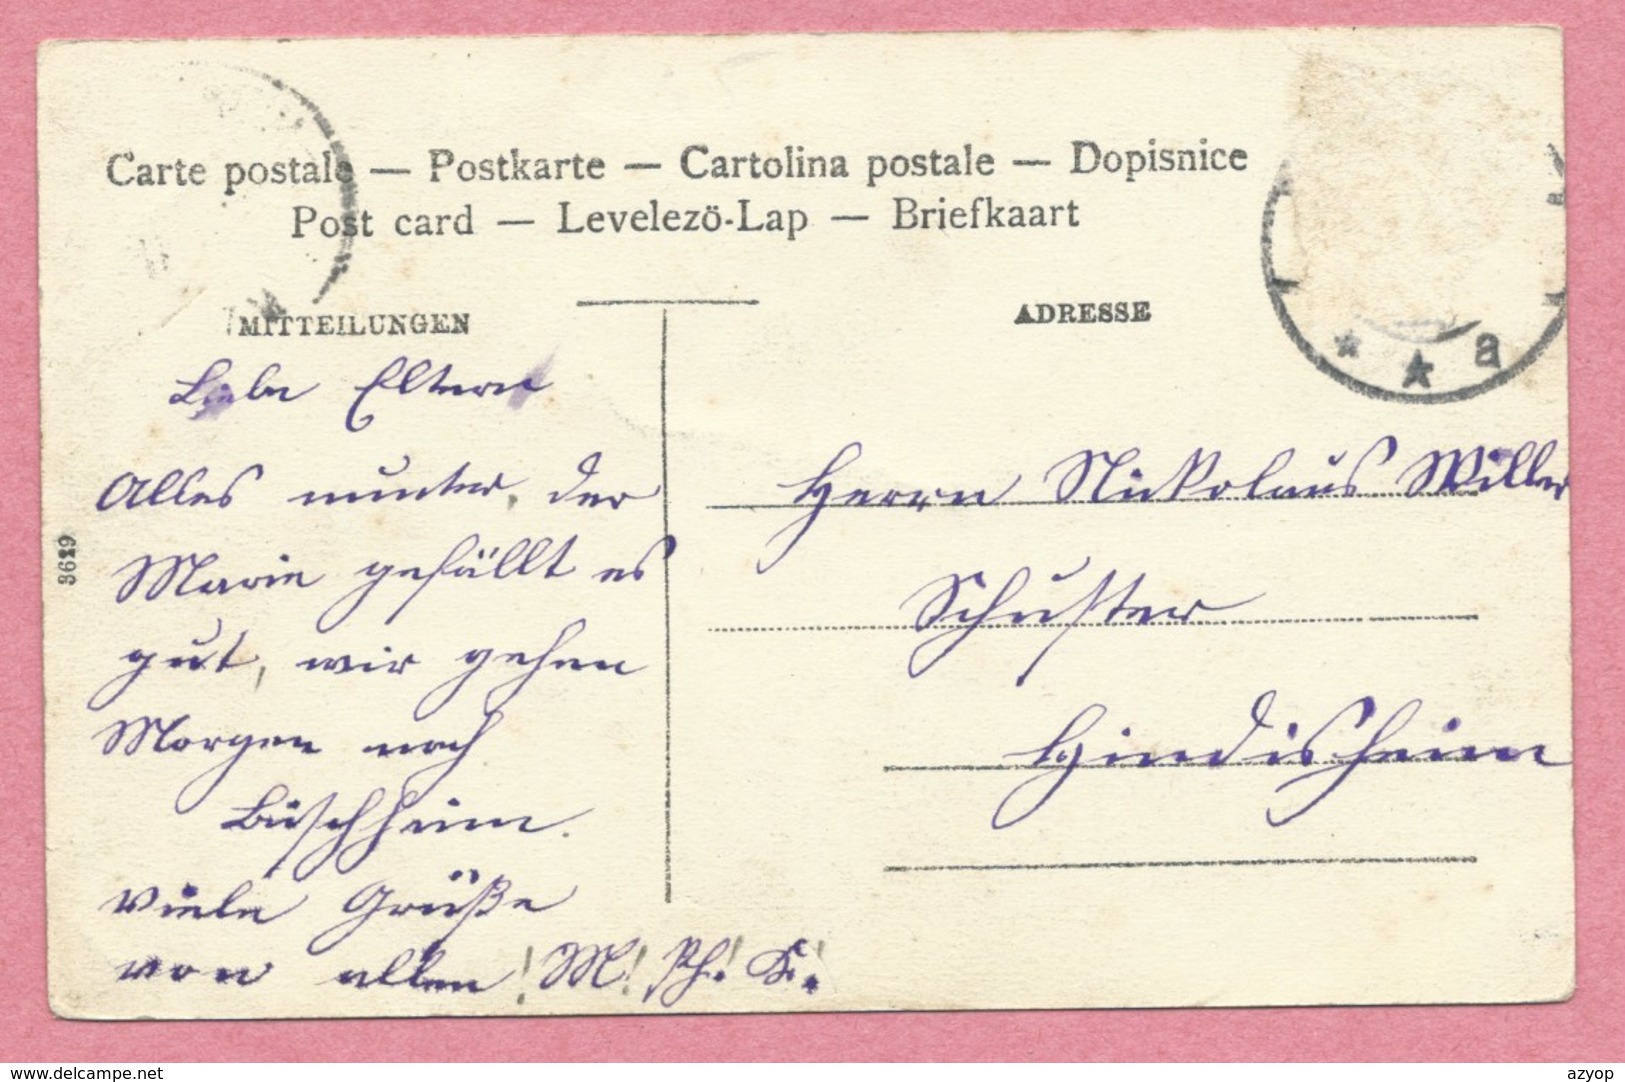 Carte postale — Postkarte — Cartolina postale — Dopisnice
Post card — Levelezö-Lap — Briefkaart
MITTEILUNGEN
ADRESSE
Liebe Eltern
Alles munter, der
Marie gefällt es
gut, wir gehen
Morgen nach
Bischheim.
Viele Grüße
von allen! M! Ph! K!
Herrn Nickolaus Willer
Schuster
Hindisheim
3619
a
www.delcampe.net
azyop